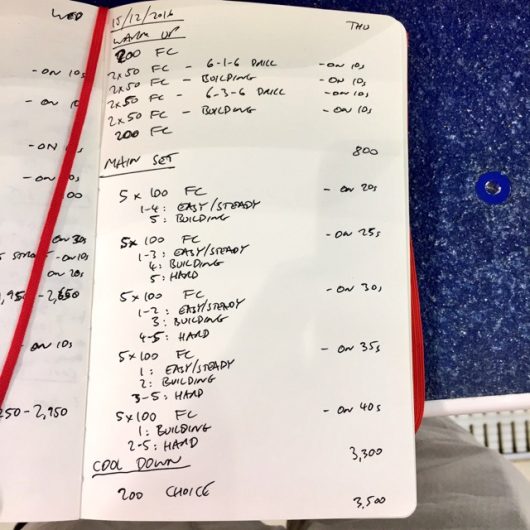 WED
- ON 10s
- ON 10s
- ON
- ON 10s
00
- ON 30s
- ON 10s
ON 20s
- 2,650
- ON 10s
250 - 2,950
15/12/2016 THU
WARM UP
200 FC
2x50 FC - 6-1-6 DRILL - ON 10s
2x50 FC - BUILDING - ON 10s
2x50 FC - 6-3-6 DRILL - ON 10s
2x50 FC - BUILDING - ON 10s
200 FC
800
MAIN SET
5x100 FC - ON 20s
1-4: EASY/STEADY
5: BUILDING
5x100 FC - ON 25s
1-3: EASY/STEADY
4: BUILDING
5: HARD
5x100 FC - ON 30s
1-2: EASY/STEADY
3: BUILDING
4-5: HARD
5x100 FC - ON 35s
1: EASY/STEADY
2: BUILDING
3-5: HARD
5x100 FC - ON 40s
1: BUILDING
2-5: HARD
3,300
COOL DOWN
200 CHOICE
3,500